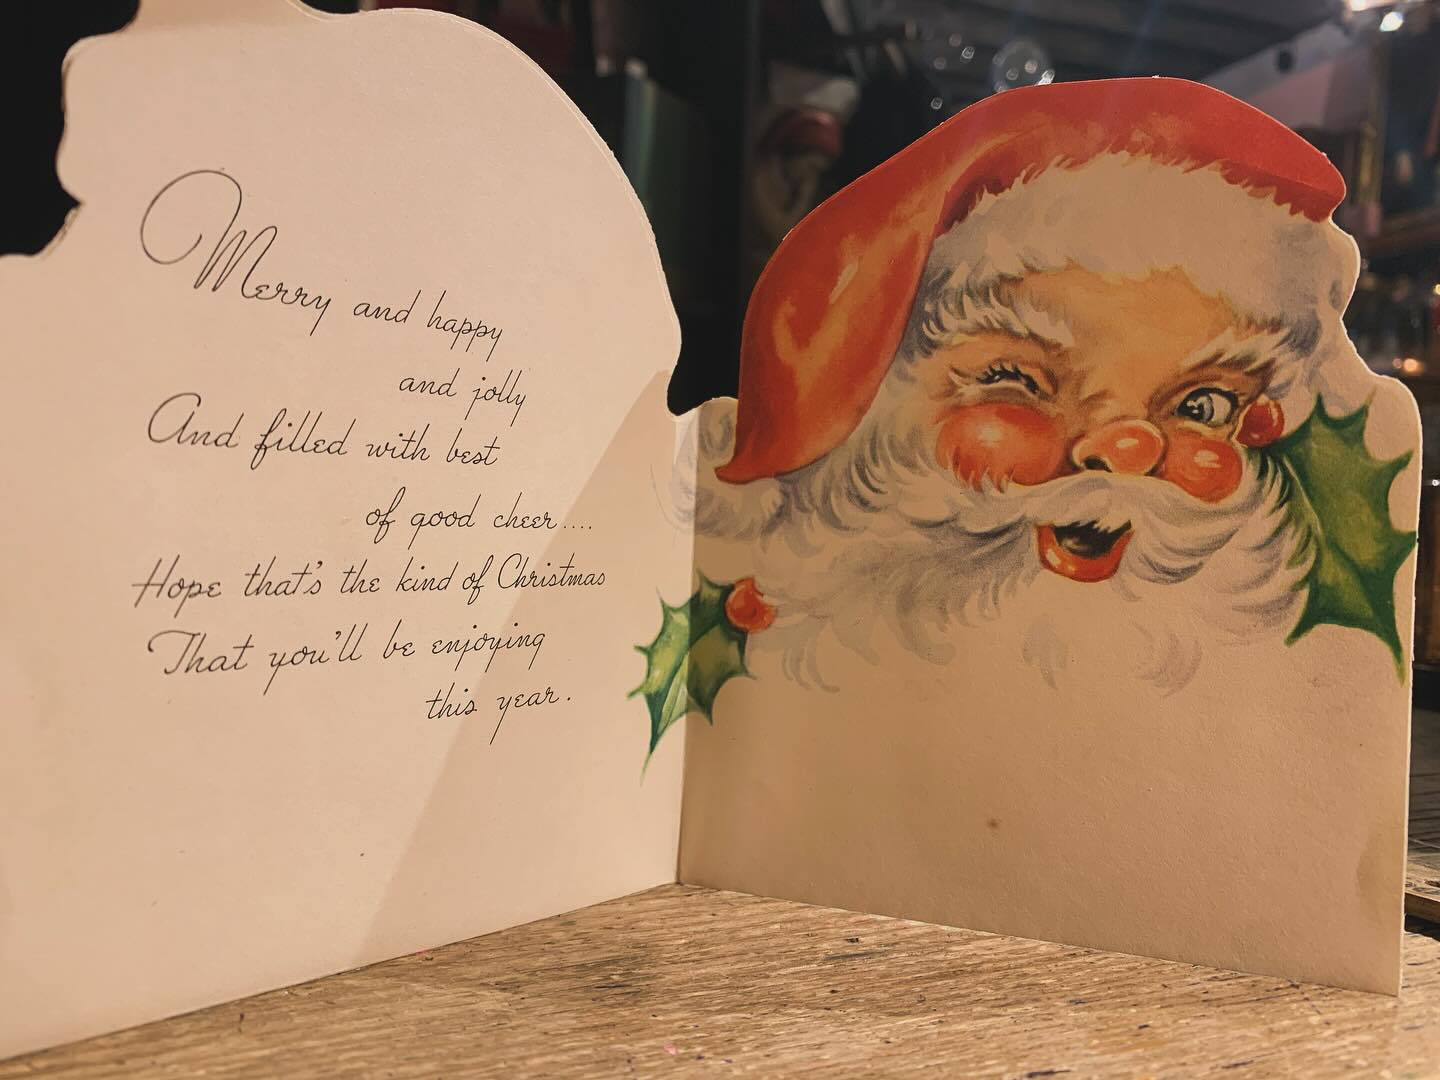 Merry and happy
and jolly
And filled with best
of good cheer....
Hope that's the kind of Christmas
That you'll be enjoying
this year.